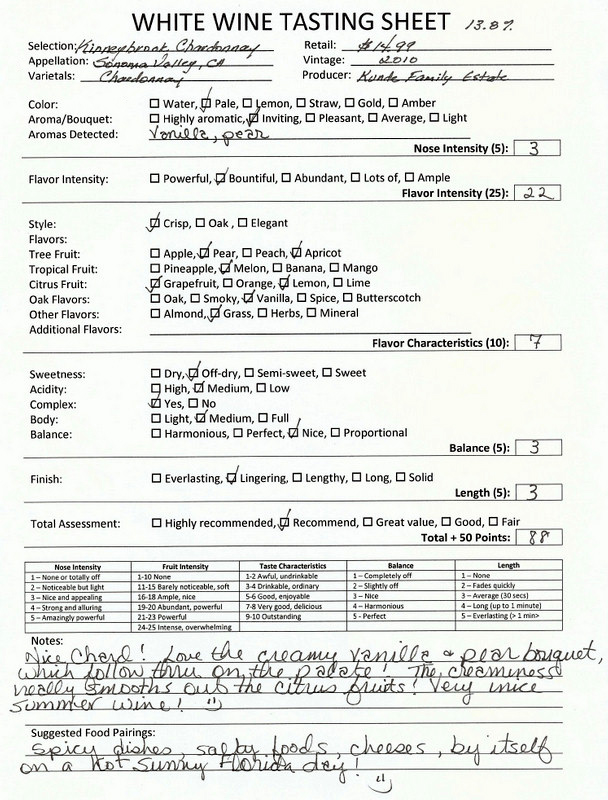 WHITE WINE TASTING SHEET 13.8%
Selection: Kinneybrook Chardonnay Retail: $14.99
Appellation: Sonoma Valley, CA Vintage: 2010
Varietals: Chardonnay Producer: Kunde Family Estate
Color: ☐ Water, ☑ Pale, ☐ Lemon, ☐ Straw, ☐ Gold, ☐ Amber
Aroma/Bouquet: ☐ Highly aromatic, ☑ Inviting, ☐ Pleasant, ☐ Average, ☐ Light
Aromas Detected: Vanilla, pear
Nose Intensity (5): 3
Flavor Intensity: ☐ Powerful, ☑ Bountiful, ☐ Abundant, ☐ Lots of, ☐ Ample
Flavor Intensity (25): 22
Style: ☑ Crisp, ☐ Oak, ☐ Elegant
Flavors:
Tree Fruit: ☐ Apple, ☑ Pear, ☐ Peach, ☑ Apricot
Tropical Fruit: ☐ Pineapple, ☑ Melon, ☐ Banana, ☐ Mango
Citrus Fruit: ☑ Grapefruit, ☐ Orange, ☑ Lemon, ☐ Lime
Oak Flavors: ☐ Oak, ☐ Smoky, ☑ Vanilla, ☐ Spice, ☐ Butterscotch
Other Flavors: ☐ Almond, ☑ Grass, ☐ Herbs, ☐ Mineral
Additional Flavors:
Flavor Characteristics (10): 7
Sweetness: ☐ Dry, ☑ Off-dry, ☐ Semi-sweet, ☐ Sweet
Acidity: ☐ High, ☑ Medium, ☐ Low
Complex: ☑ Yes, ☐ No
Body: ☐ Light, ☑ Medium, ☐ Full
Balance: ☐ Harmonious, ☐ Perfect, ☑ Nice, ☐ Proportional
Balance (5): 3
Finish: ☐ Everlasting, ☑ Lingering, ☐ Lengthy, ☐ Long, ☐ Solid
Length (5): 3
Total Assessment: ☐ Highly recommended, ☑ Recommend, ☐ Great value, ☐ Good, ☐ Fair
Total + 50 Points: 88
Nose Intensity Fruit Intensity Taste Characteristics Balance Length
1 – None or totally off 1-10 None 1-2 Awful, undrinkable 1 – Completely off 1 – None
2 – Noticeable but light 11-15 Barely noticeable, soft 3-4 Drinkable, ordinary 2 – Slightly off 2 – Fades quickly
3 – Nice and appealing 16-18 Ample, nice 5-6 Good, enjoyable 3 – Nice 3 – Average (30 secs)
4 – Strong and alluring 19-20 Abundant, powerful 7-8 Very good, delicious 4 – Harmonious 4 – Long (up to 1 minute)
5 – Amazingly powerful 21-23 Powerful 9-10 Outstanding 5 - Perfect 5 – Everlasting (> 1 min>
24-25 Intense, overwhelming
Notes:
Nice Chard! Love the creamy vanilla & pear bouquet,
which follow thru on the palate! The creaminess
really smooths out the citrus fruits! Very nice
summer wine! :)
Suggested Food Pairings:
Spicy dishes, salty foods, cheeses, by itself
on a hot sunny Florida day! :)